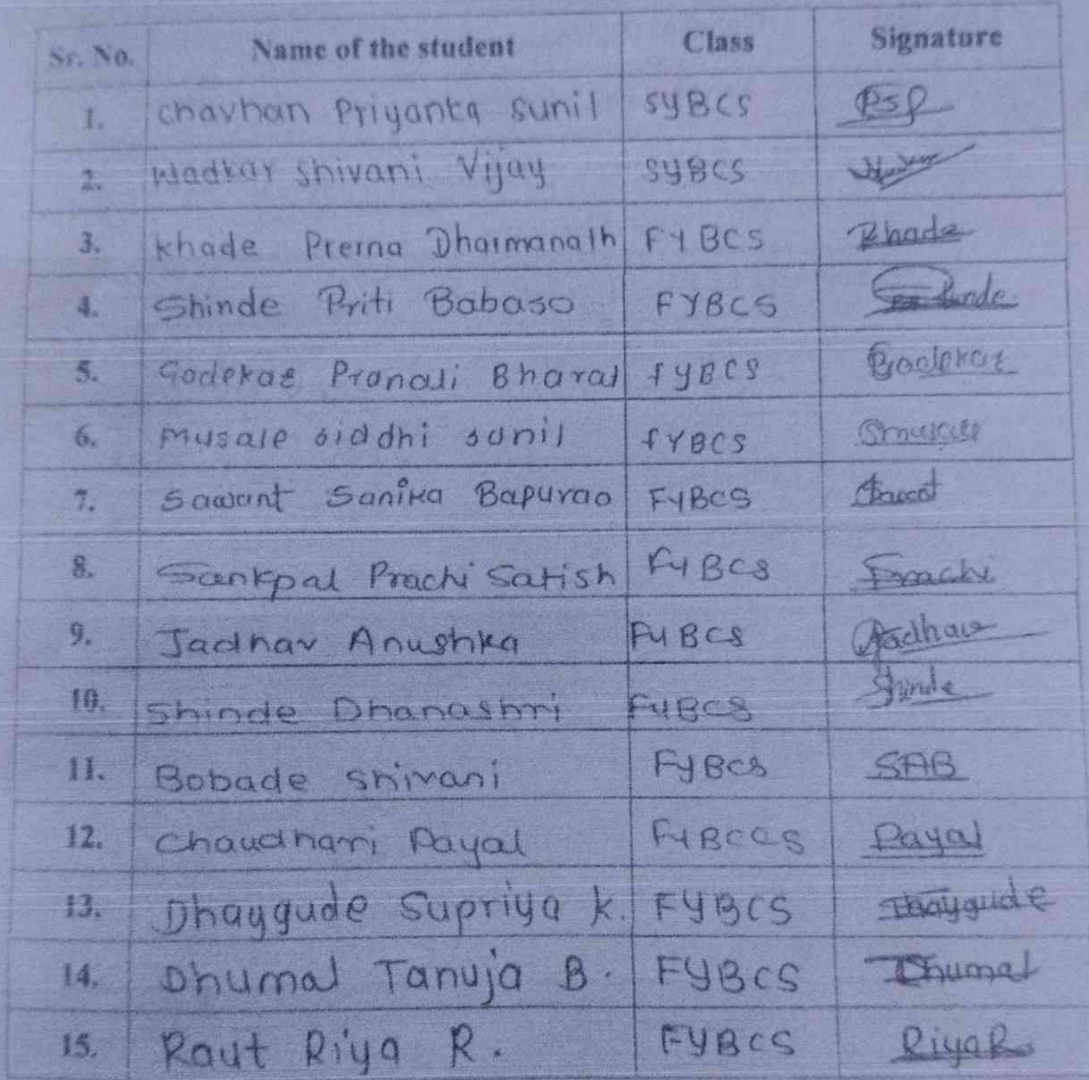 Sr. No. Name of the student Class Signature
1. Chavhan Priyanka Sunil SYBCS PSP
2. Wadkar Shivani Vijay SYBCS
3. Khade Prerna Dharmanath FYBCS Khade
4. Shinde Priti Babaso FYBCS Shinde
5. Godekar Pranali Bharat fyBCS Godekar
6. Musale siddhi sunil fYBCS Smusale
7. Sawant Sanika Bapurao FYBCS Sawant
8. Sankpal Prachi Satish FyBCS Prachi
9. Jadhav Anushka FYBCS Jadhav
10. Shinde Dhanashri FYBCS Shinde
11. Bobade shivani FyBCS SAB
12. Chaudhari Payal FYBCCS Payal
13. Dhaygude Supriya K. FYBCS Dhaygude
14. Dhumal Tanuja B. FYBCS Dhumal
15. Raut Riya R. FYBCS Riya R.